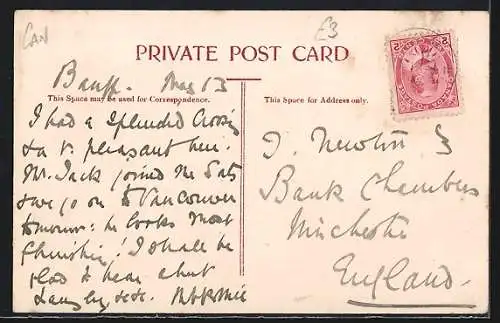 CAN
£3
PRIVATE POST CARD
Banff. May 13
This Space may be used for Correspondence.
I had a splendid Crossing
& a v. pleasant time.
Mr. Jack joined me Sat.
& we go on to Vancouver
tomorrow: he looks most
flourishing! I shall be
glad to hear about
Langley &c.
This Space for Address only.
J. Newton
Bank Chambers
Winchester
England.